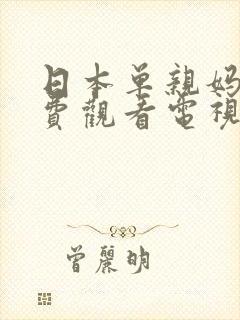 日本单亲妈
費觀看電視
曾麗明